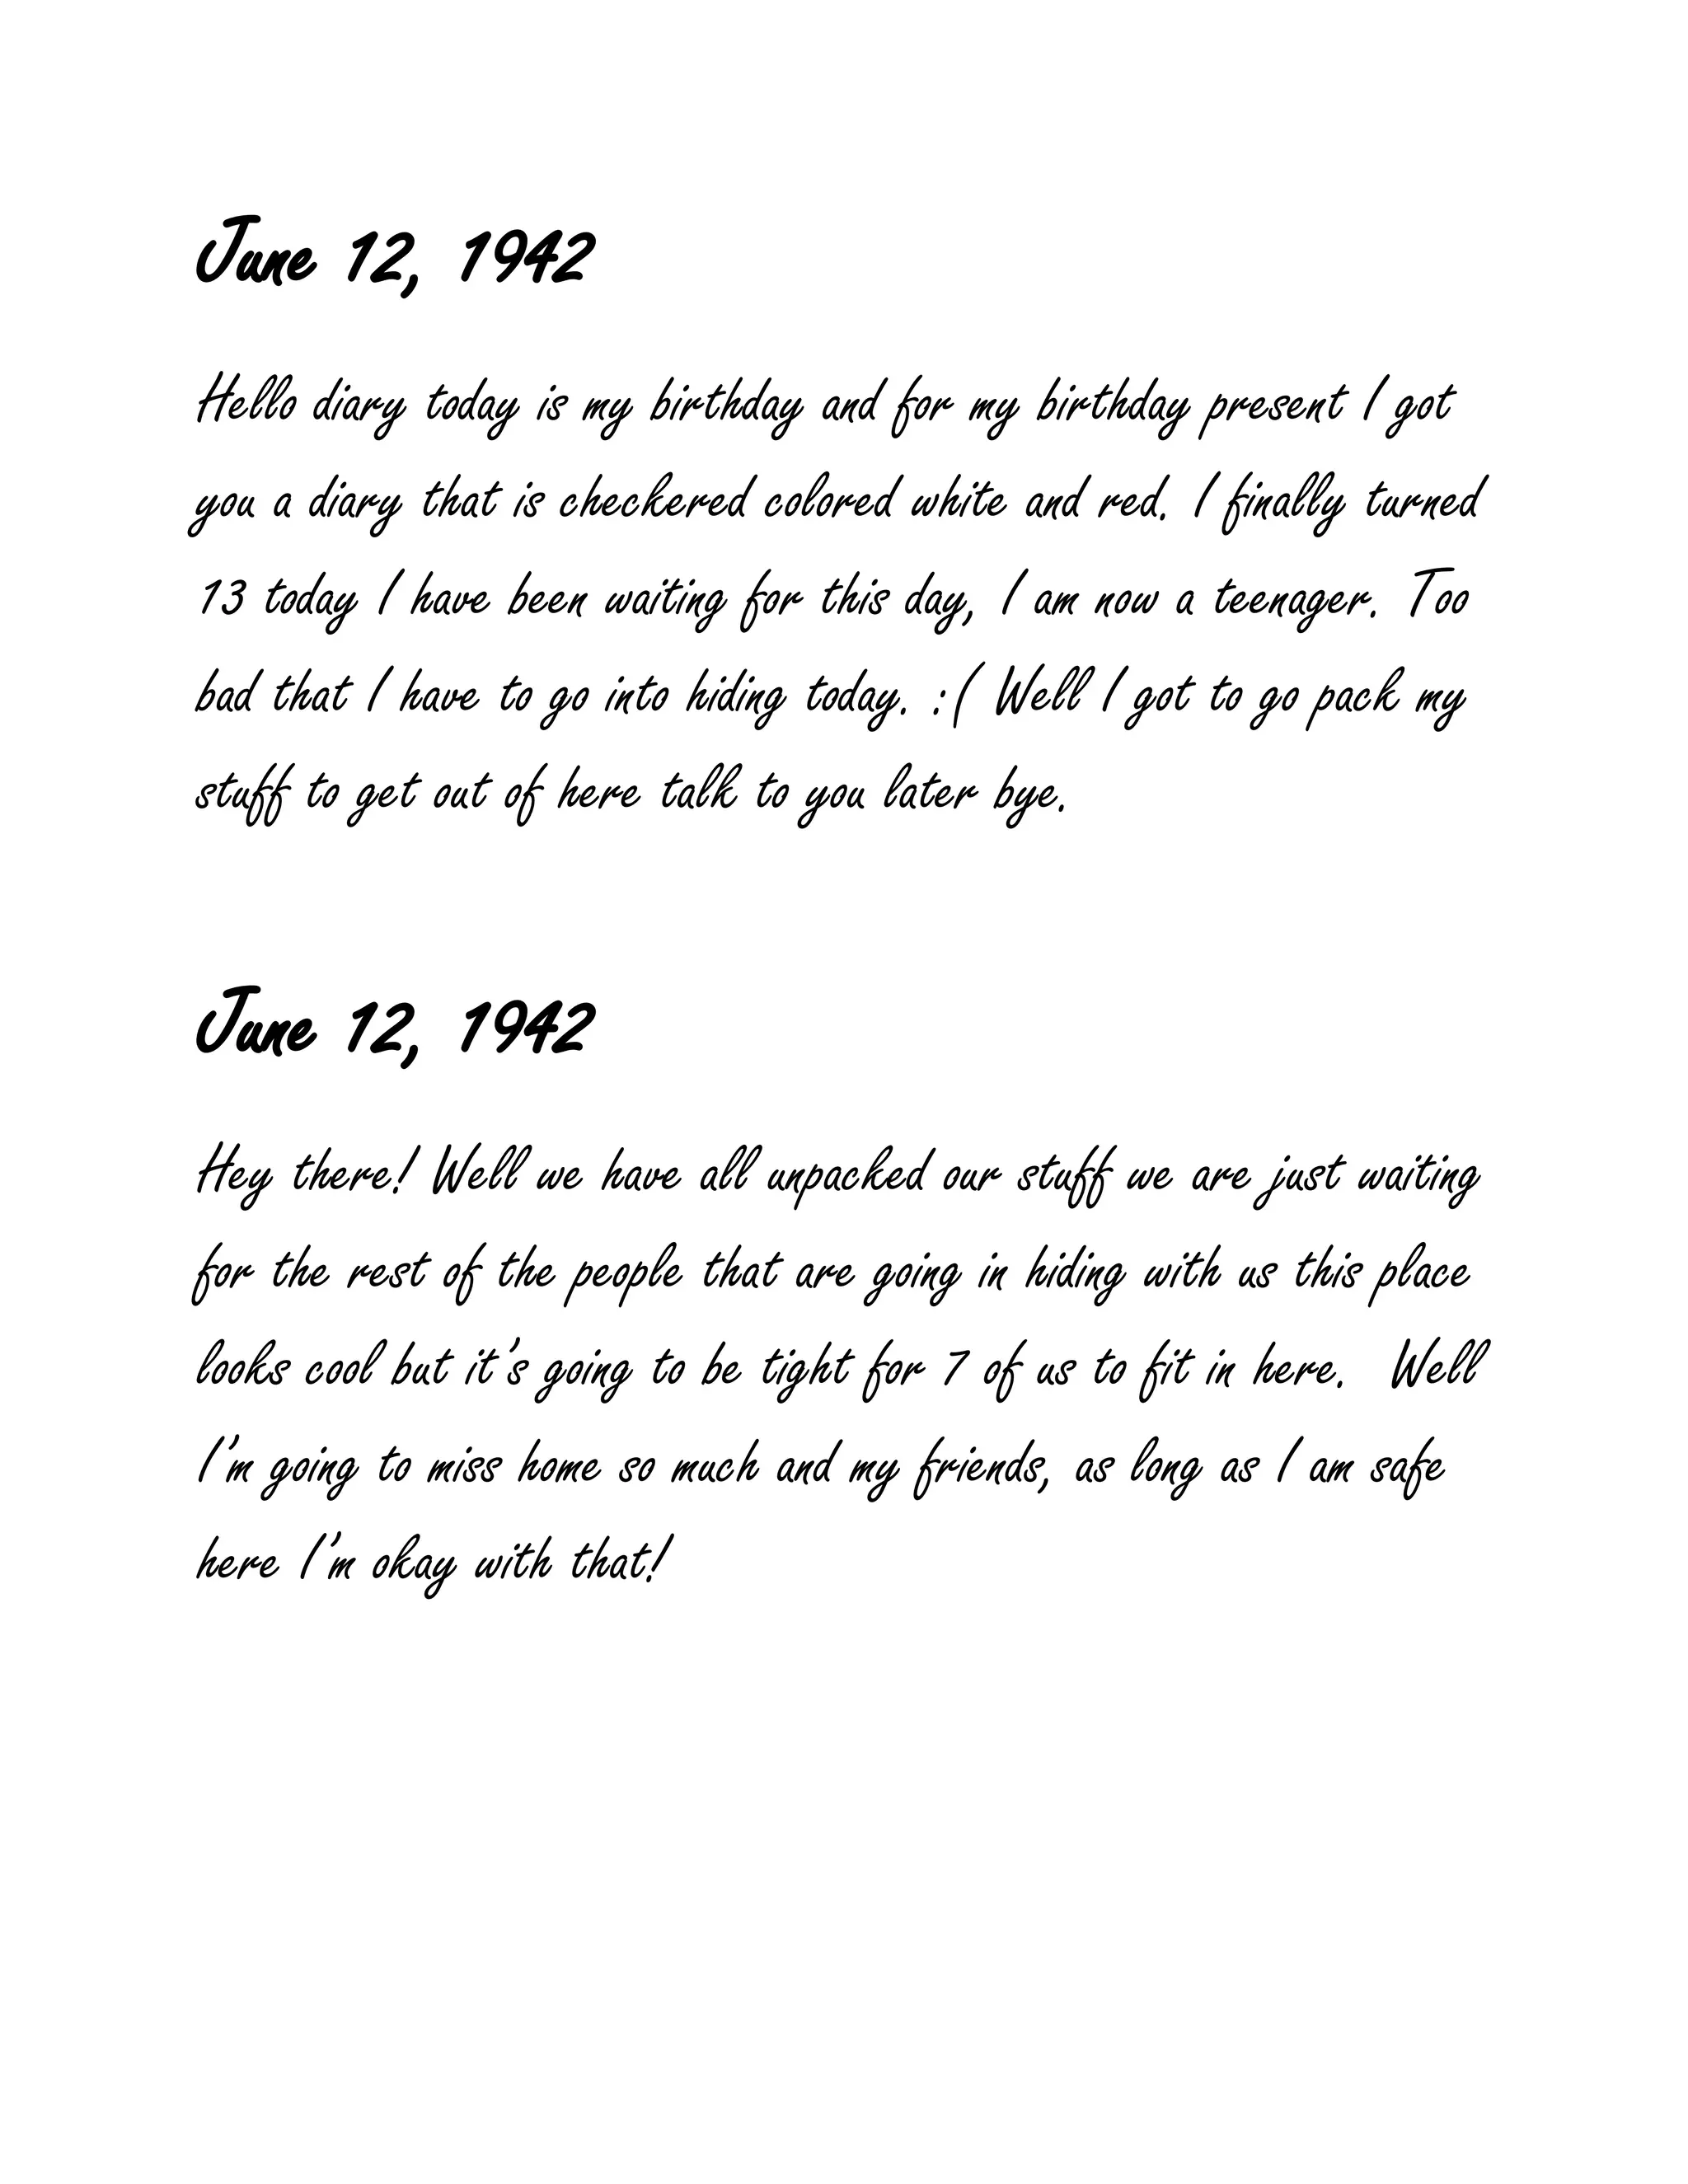 June 12, 1942
Hello diary today is my birthday and for my birthday present I got
you a diary that is checkered colored white and red. I finally turned
13 today I have been waiting for this day, I am now a teenager. Too
bad that I have to go into hiding today. :( Well I got to go pack my
stuff to get out of here talk to you later bye.
June 12, 1942
Hey there! Well we have all unpacked our stuff we are just waiting
for the rest of the people that are going in hiding with us this place
looks cool but it's going to be tight for 7 of us to fit in here. Well
I'm going to miss home so much and my friends, as long as I am safe
here I'm okay with that!